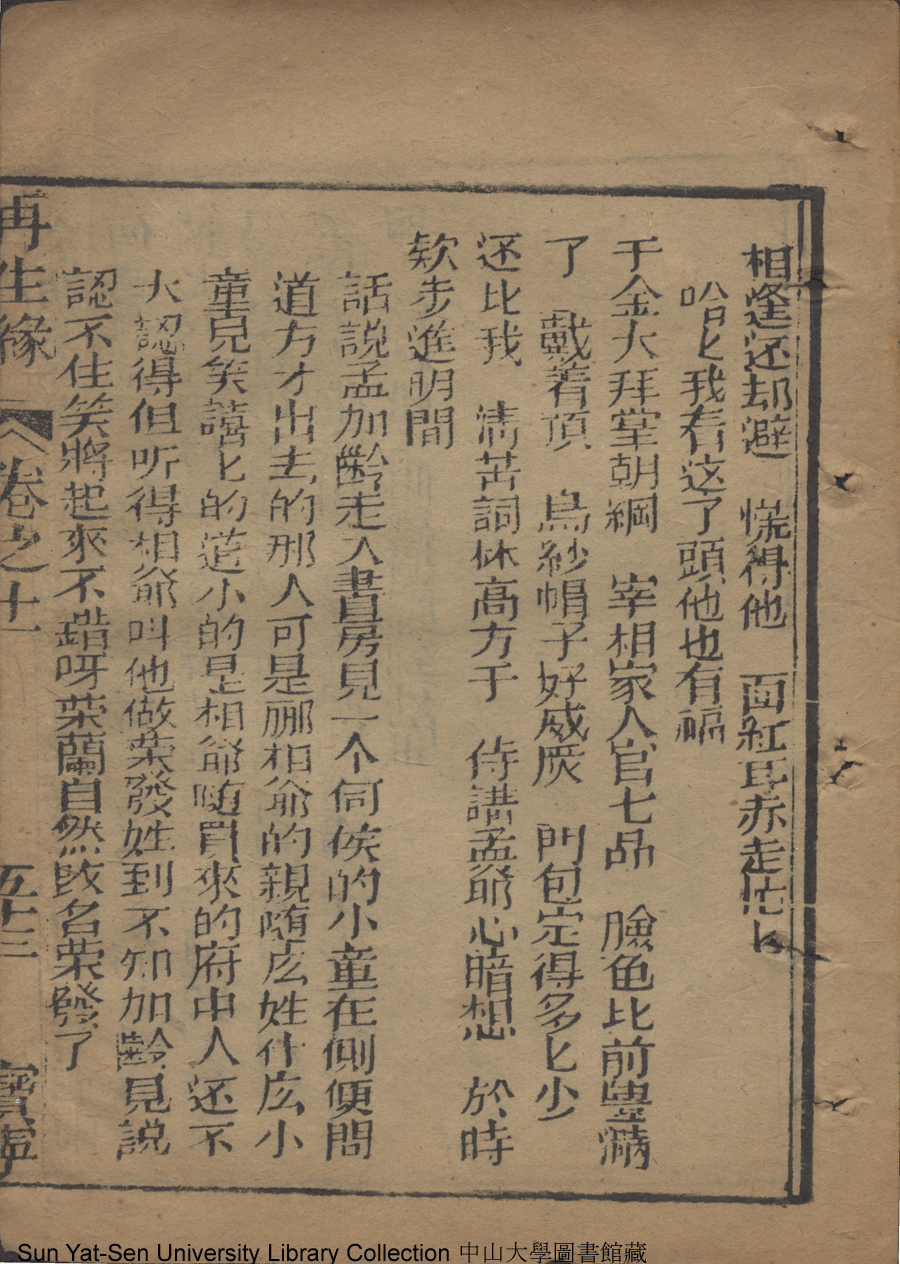 相逢还却避　慌得他　面紅耳赤走忙匕
哈匕我看这了頭他也有福
于金大拜堂朝綱　宰相家人官七品　臉色比前豊滿
了　戴着頂　烏紗帽子好威炭　門包定得多匕少
还比我　清苦詞林高方于　侍講孟爺心暗想　於時
欵步進明間
話說孟加齡走入書房見一个伺候的小童在側便問
道方才出去的那人可是郦相爺的親随庅姓什庅小
童兒笑譆匕的道小的是相爺随買來的府中人还不
大認得但听得相爺叫他做荣發姓到不知加齡見說
認不住笑將起來不錯呀荣蘭自然改名荣發了
再生緣　卷之十一　五十三　寳寧
Sun Yat-Sen University Library Collection 中山大學圖書館藏